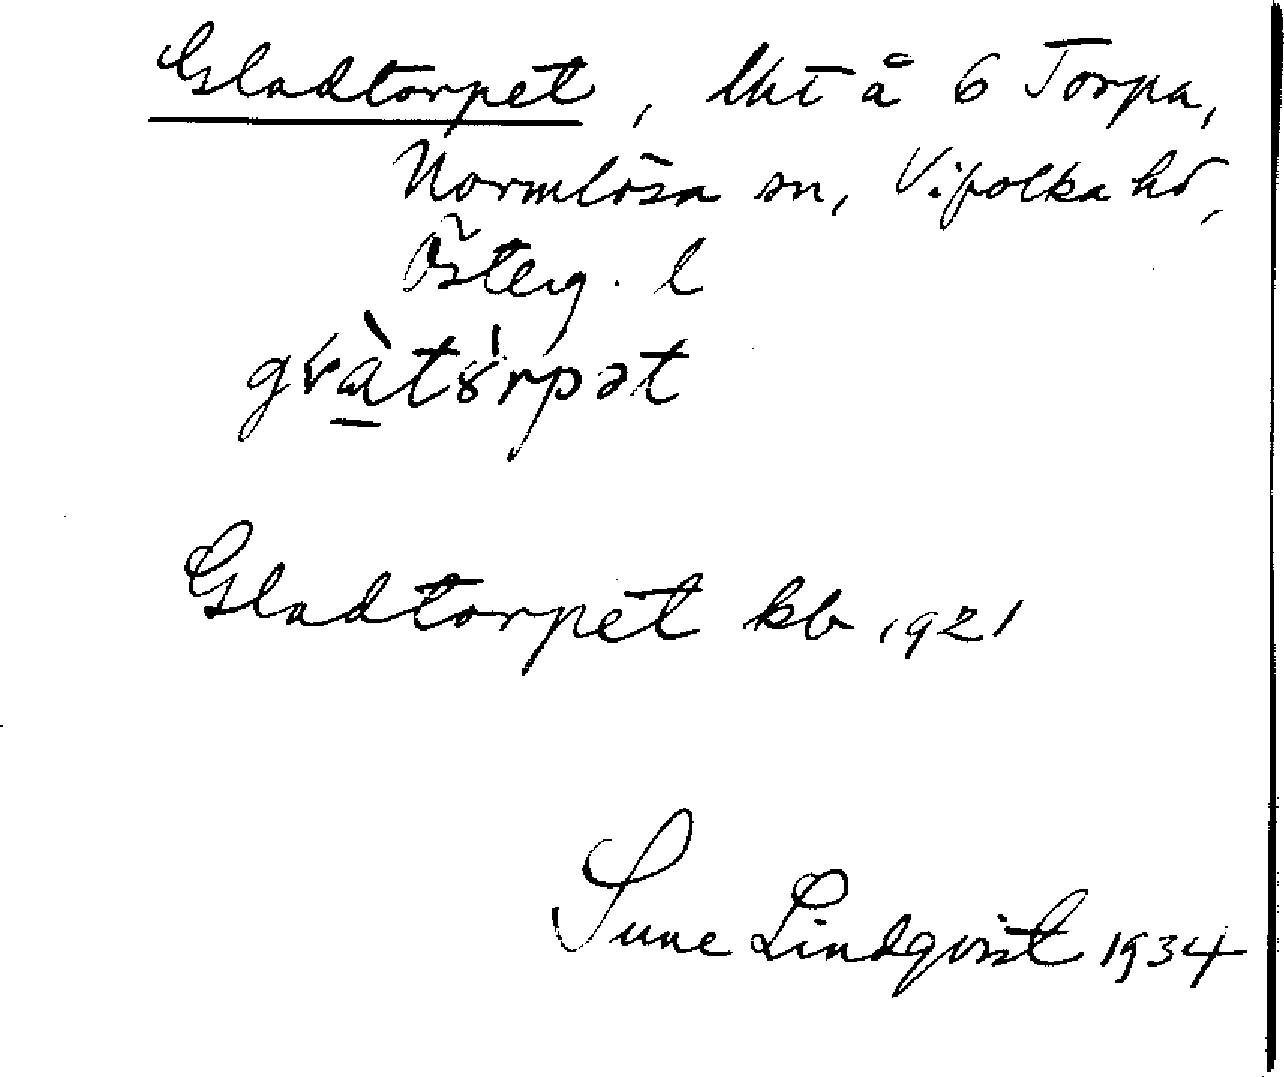 Gladtorpet, lht å 6 Torpa,
Normlösa sn, Vifolka hd,
Österg. l
Gladtorpet kb 1921
Sune Lindqvist 1934